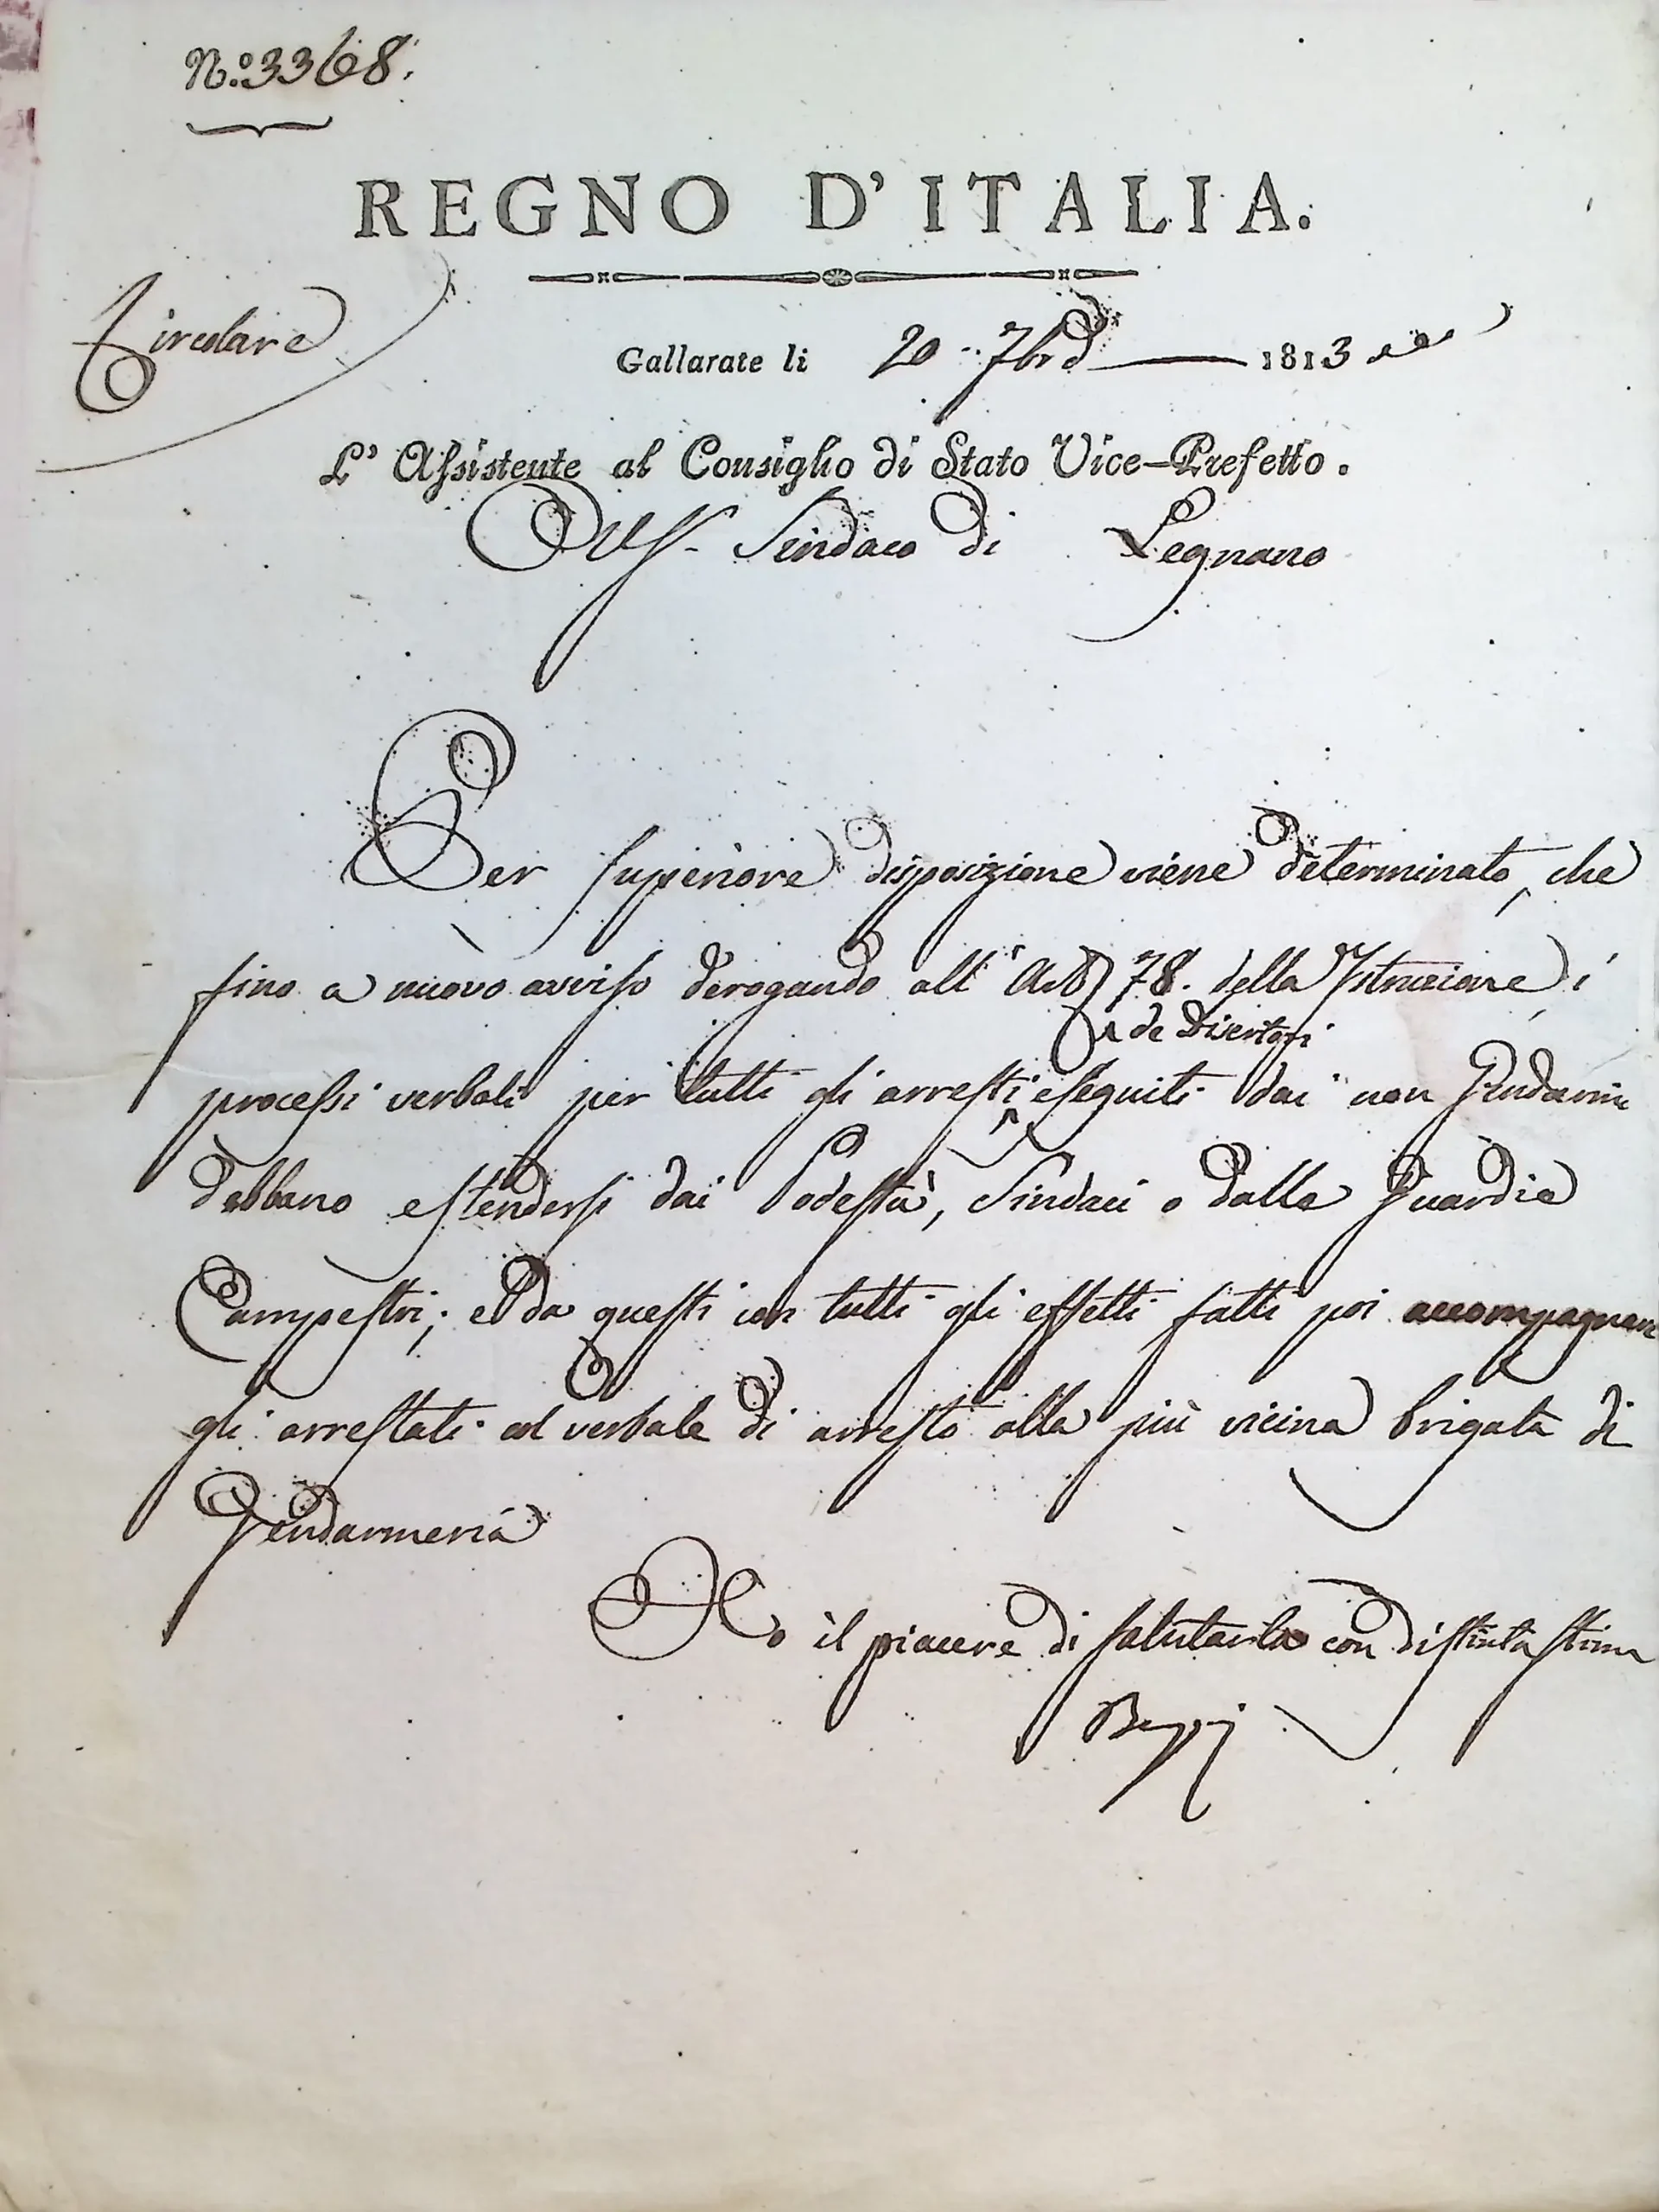 N.o 3368.
REGNO D'ITALIA.
Circolare
Gallarate li 20 7bre 1813
L' Assistente al Consiglio di Stato Vice-Prefetto.
Sindaco di Legnano
Per superiore disposizione viene determinato, che
fino a nuovo avviso derogando all' Art 78. della Istruzione i
de Disertori
processi verbali per tutti gli arresti eseguiti dai non Gendarmi
debbano estendersi dai Podestà, Sindaci o dalle Guardie
Campestri; e da questi con tutti gli effetti fatti poi accompagnare
gli arrestati col verbale di arresto alla più vicina brigata di
Gendarmeria
Ho il piacere di salutarla con distinta stima